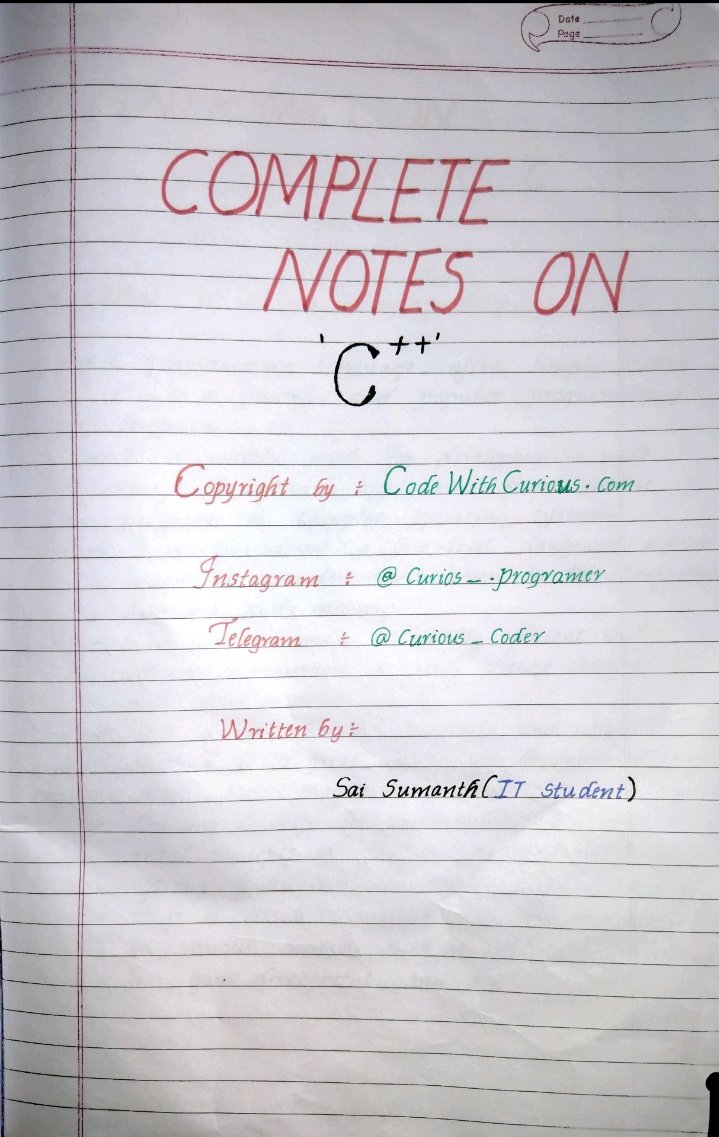 Date
Page
COMPLETE
NOTES ON
'C++'
Copyright by ÷ Code With Curious.Com
Instagram ÷ @ Curios_.programer
Telegram ÷ @ Curious_Coder
Written by ÷
Sai Sumanth (IT student)